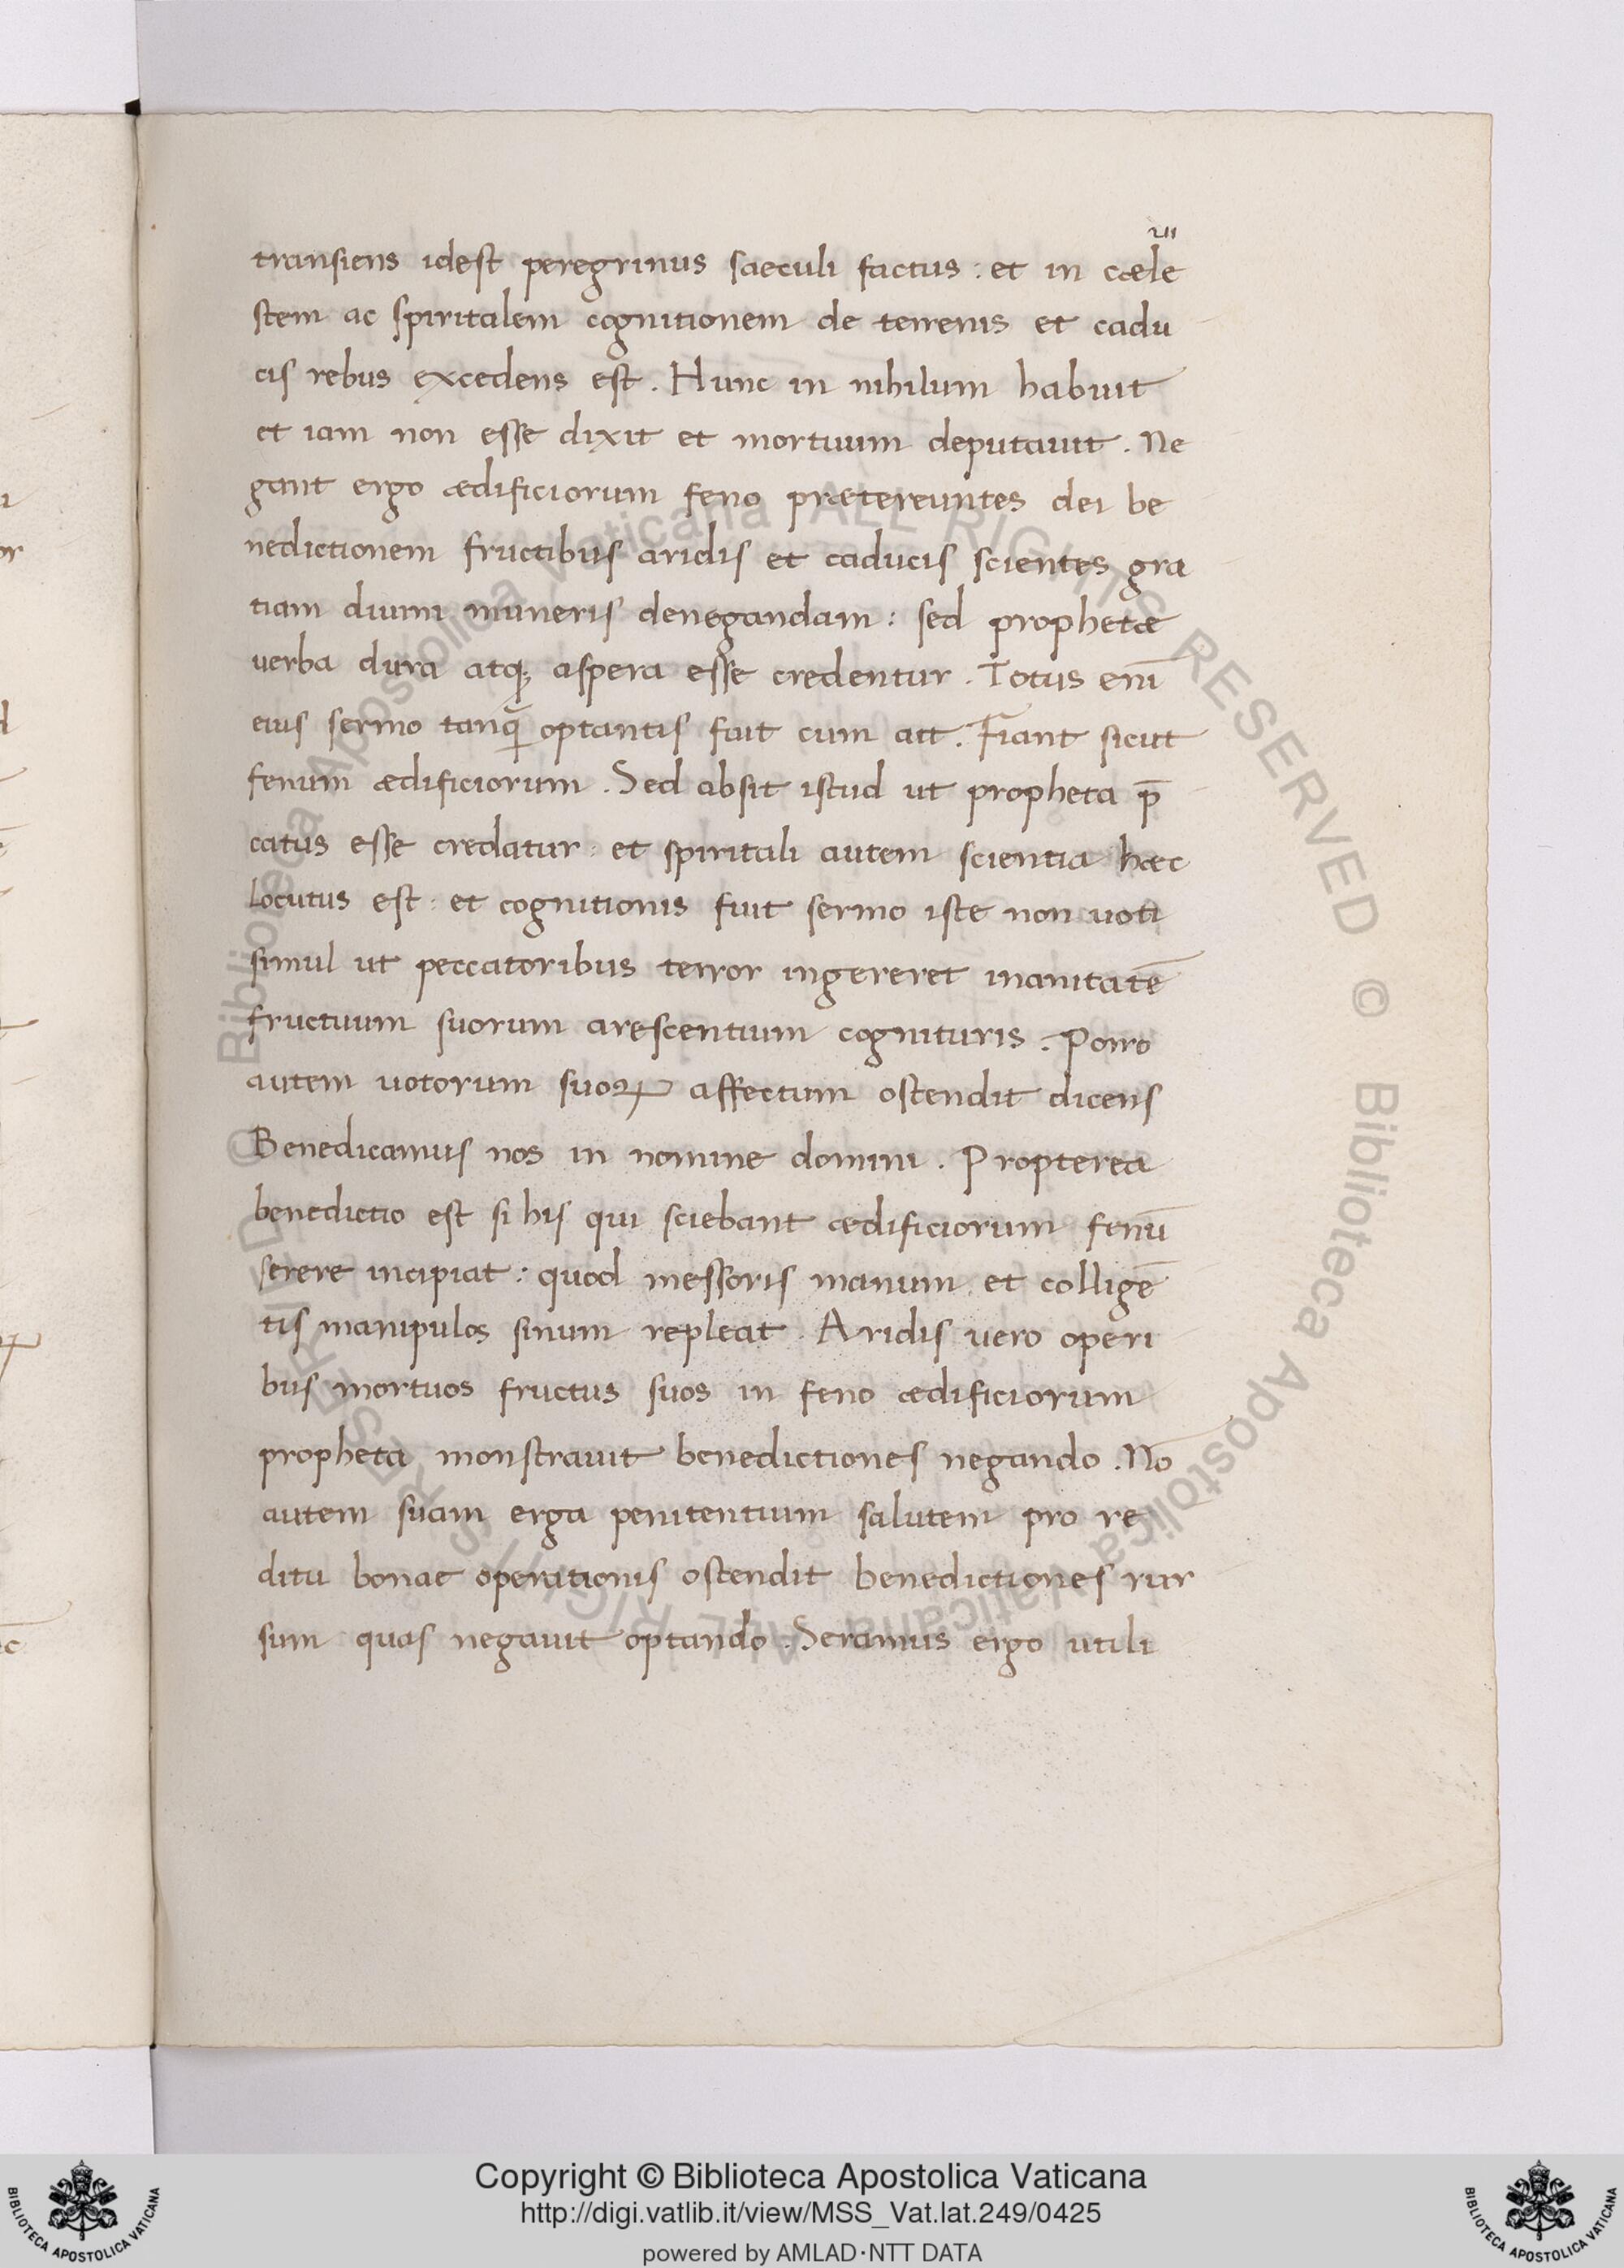 vii
transiens idest peregrinus saeculi factus : et in cæle
stem ac spiritalem cognitionem de terrenis et cadu
cis rebus excedens est . Hunc in nihilum habuit
et iam non esse dixit et mortuum deputauit . Ne
gant ergo ædificiorum feno prætereuntes dei be
nedictionem fructibus aridis et caducis scientes gra
tiam diuini muneris denegandam : sed prophetæ
uerba dura atq; aspera esse credentur . Totus eni̅
eius sermo tanq̅ optantis fuit cum ait . Fiant sicut
fenum ædificiorum . Sed absit istud ut propheta p̅
catus esse credatur : et spiritali autem scientia hæc
locutus est : et cognitionis fuit sermo iste non uoti
simul ut peccatoribus terror ingereret inanitate̅
fructuum suorum arescentium cognituris . Porro
autem uotorum suoꝝ affectum ostendit dicens
Benedicamus nos in nomine domini . Propterea
benedictio est si his qui sciebant ædificiorum fenu̅
serere incipiat : quod messoris manum et collige̅
tis manipulos sinum repleat . Aridis uero operi
bus mortuos fructus suos in feno ædificiorum
propheta monstrauit benedictiones negando . No̅
autem suam erga penitentium salutem pro re
ditu bonae operationis ostendit benedictiones rur
sum quas negauit optando . Seramus ergo utili
Copyright © Biblioteca Apostolica Vaticana
http://digi.vatlib.it/view/MSS_Vat.lat.249/0425
powered by AMLAD·NTT DATA
BIBLIOTECA APOSTOLICA VATICANA
BIBLIOTECA APOSTOLICA VATICANA
© Biblioteca Apostolica Vaticana ALL RIGHTS RESERVED © Biblioteca Apostolica Vaticana ALL RIGHTS RESERVED